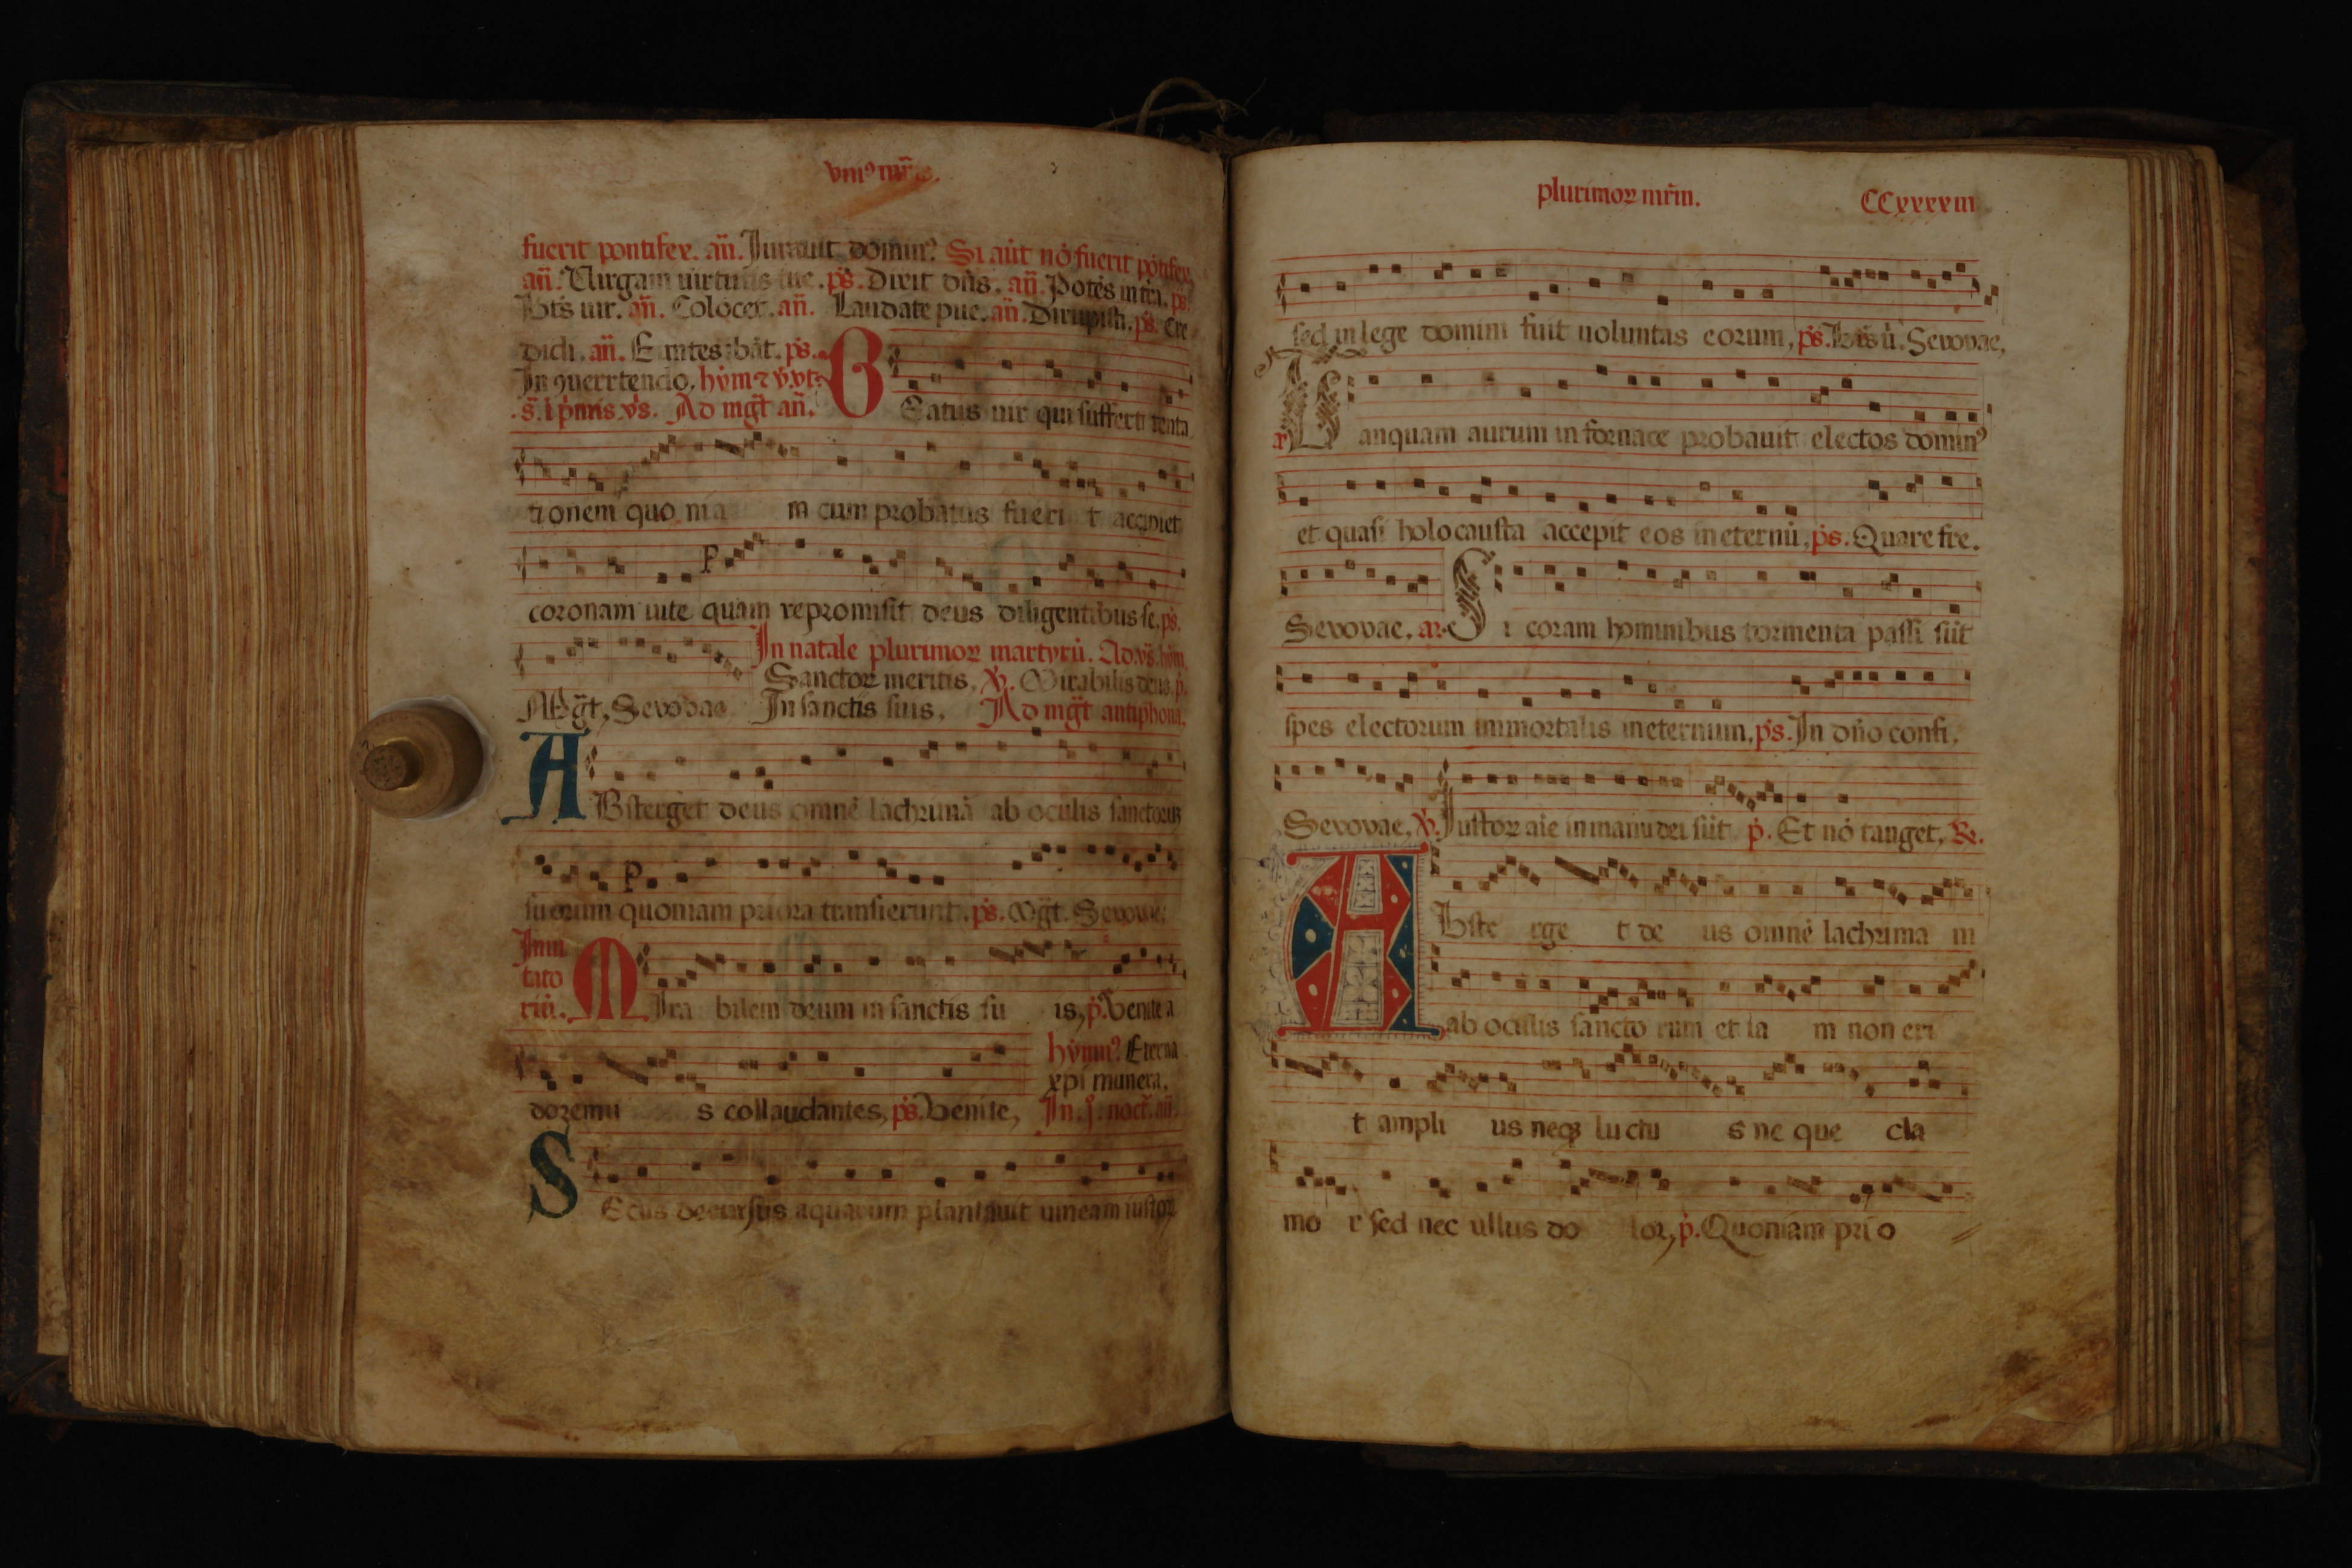 vniꝰ mr̃is.
fuerit pontifex. añ. Iurauit dominꝰ Si aūt nō fuerit põtifex
añ. Uirgam uirtutis tue. ps̄. Dixit dñs. añ. Potẽs in tr̃a. ps̄.
Bt̃s uir. añ. Colocet. añ. Laudate pue. añ. Dirupisti. ps̄. Cre
didi. añ. Euntes ibāt. ps̄.
In ꝯuertendo. hym̄
Ad mgt̃ añ.
BEatus uir qui suffert tenta
tionem quo nia m cum probatus fueri t accipiet
coronam uite quam repromisit deus diligentibus se. ps̄.
In natale plurimoꝝ martyrū. Ad vs̄. hym̄.
Sanctoꝝ meritis. ℣. Mirabilis deus. p̄.
Mgt̃, Seuouae In sanctis suis. Ad mgt̃ antiphona.
ABsterget deus omnē lachrimā ab oculis sanctoruꝫ
suorum quoniam priora transierunt. ps̄. Mgt̃. Seuouae.
Inui
tato
riū. MIra bilem deum in sanctis su is, p̄. Venite a
hymnꝰ Eterna
xp̄i munera.
doremu s collaudantes, ps̄. Venite, In .j. noct̃. añ.
SEcus decursus aquarum plantauit uineam iustoꝝ
plurimoꝝ mr̃m. CCxxxxiii
sed in lege domini fuit uoluntas eorum, ps̄. Bt̃s ū. Seuouae,
Tanquam aurum in fornace probauit electos dominꝰ
et quasi holocausta accepit eos in eternū, ps̄. Quare fre.
Seuouae. añ. Si coram hominibus tormenta passi sūt
spes electorum immortalis in eternum, ps̄. In dño confi,
Seuouae, ℣. Iustoꝝ aīe in manu dei sūt p̄. Et nō tanget, ℟.
ABste rge t de us omnē lachrima m
ab oculis sancto rum et ia m non eri
t ampli us neqꝫ luctu s ne que cla
mo r sed nec ullus do lor, p̄. Quoniam pri o